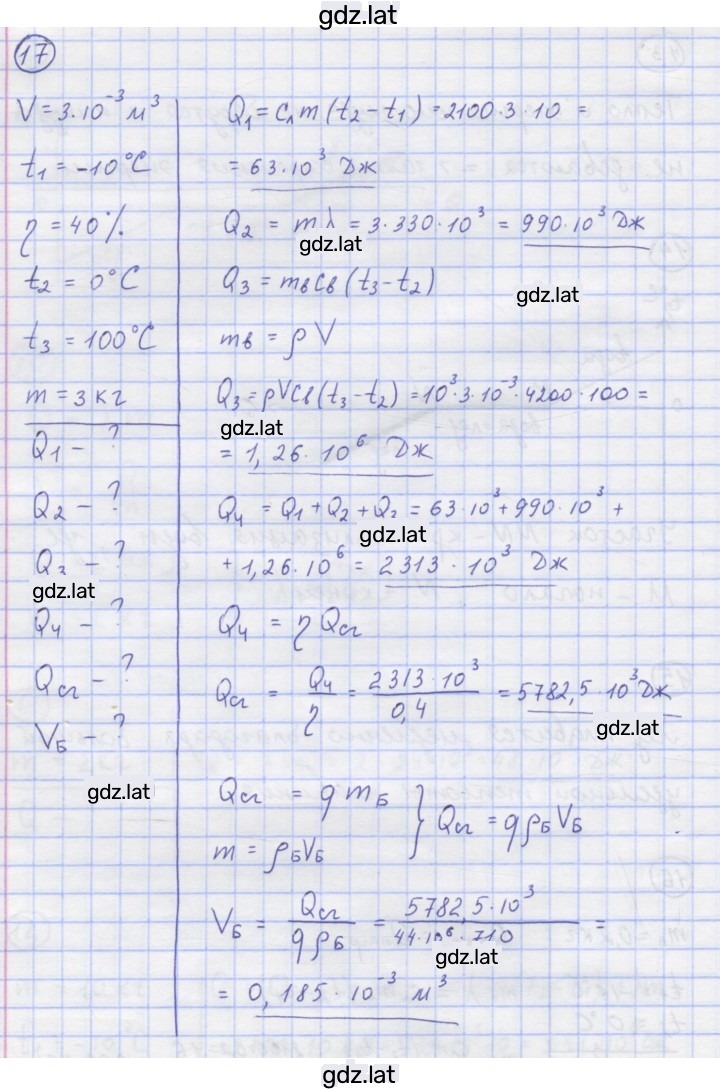 gdz.lat
17
V = 3·10⁻³ м³
t₁ = -10°C
η = 40%
t₂ = 0°C
t₃ = 100°C
m = 3 кг
Q₁ - ?
Q₂ - ?
Q₃ - ?
gdz.lat
Q₄ - ?
Qсг - ?
Vб - ?
gdz.lat
Q₁ = cлm(t₂-t₁) = 2100·3·10 =
= 63·10³ Дж
Q₂ = mλ = 3·330·10³ = 990·10³ Дж
gdz.lat
Q₃ = mвcв(t₃-t₂)
gdz.lat
mв = ρV
Q₃ = ρVcв(t₃-t₂) = 10³·3·10⁻³·4200·100 =
gdz.lat
= 1,26·10⁶ Дж
Q₄ = Q₁+Q₂+Q₃ = 63·10³+990·10³+
gdz.lat
+1,26·10⁶ = 2313·10³ Дж
Q₄ = ηQсг
Qсг = Q₄/η = 2313·10³/0,4 = 5782,5·10³ Дж
gdz.lat
Qсг = qmб } Qсг = qρбVб
m = ρбVб
Vб = Qсг/qρб = 5782,5·10³/44·10⁶·710 =
gdz.lat
= 0,185·10⁻³ м³
gdz.lat